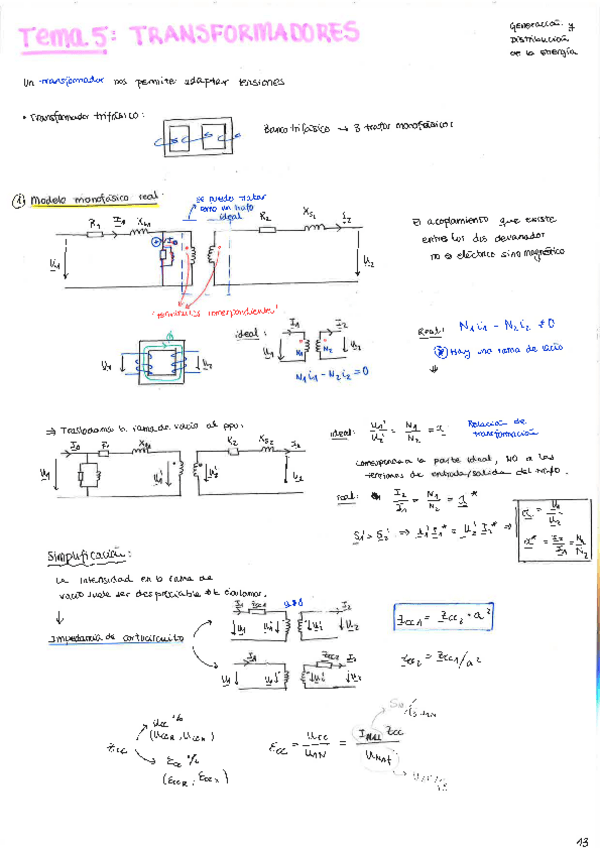 Tema 5: TRANSFORMADORES
Generación y
Distribución
de la energía
Un transformador nos permite adaptar tensiones
• Transformador trifásico:
Banco trifásico → 3 trafos monofásicos
1) Modelo monofásico real:
se puede tratar
como un trafo
ideal
R₁ I₁
R₂ Xs₂ I₂
U₁
U₂
El acoplamiento que existe
entre los dos devanados
no es eléctrico sino magnético
"terminales correspondientes"
U₁ U₂
ideal: I₁ I₂
U₁ N₁ N₂ U₂
N₁i₁ - N₂i₂ = 0
Real: N₁i₁ - N₂i₂ ≠ 0
Hay una rama de vacío
⇒ Trasladamos la rama de vacío al ppo:
U₁ U₁' U₂' U₂
R₂ Xs₂ I₂
ideal: U₁'/U₂' = N₁/N₂ = a
Relación de
transformación
corresponde a la parte ideal, NO a las
tensiones de entrada/salida del trafo.
real: I₂/I₁ = N₁/N₂ = a*
a = U₁/U₂
a* = I₂/I₁ = N₁/N₂
Simplificación:
La intensidad en la rama de
vacío suele ser despreciable
Impedancia de cortocircuito
I₁ Zcc₁ I₂
I₁ Zcc₂ I₂
Zcc₁ = Zcc₂ · a²
Zcc₂ = Zcc₁/a²
Zcc
Ucc %
(UccR, UccX)
Ecc %
(EccR, EccX)
Ecc = Ucc/U₁N
13